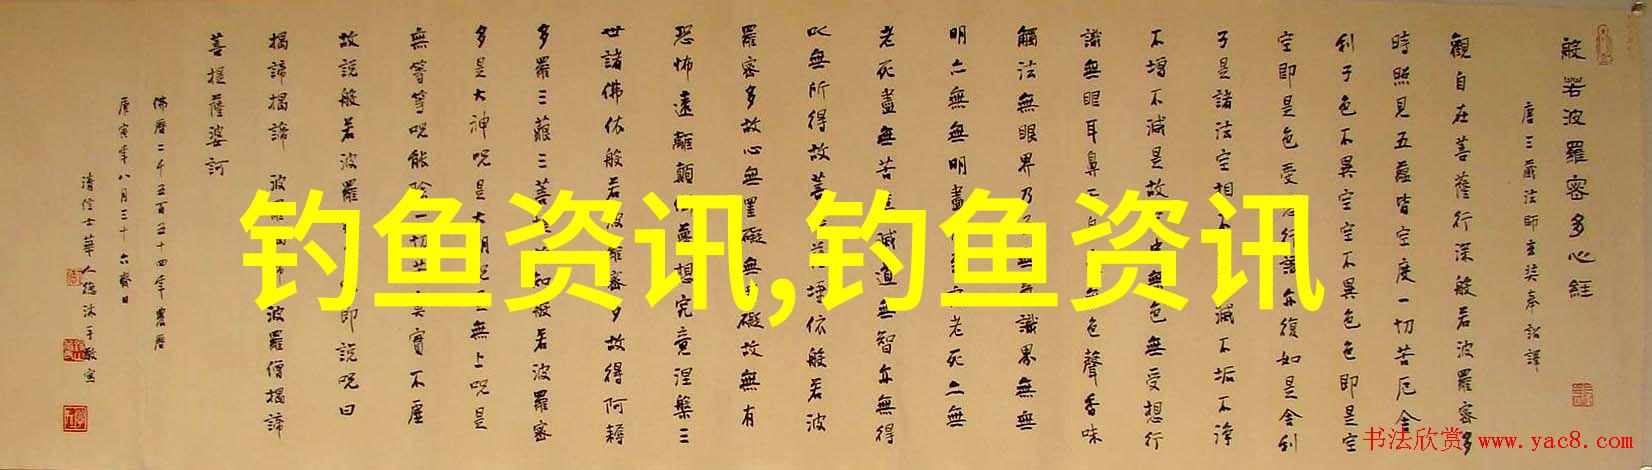 般若波羅密多心經
唐三藏法師玄奘奉詔譯
觀自在菩薩行深般若波羅密多
時照見五蘊皆空度一切苦厄舍
利子色不異空空不異色色即是空
空即是色受行識亦復如是舍利
子是諸法空相不滅不垢不淨
不增不減是故中無色無受想行
識無眼耳鼻無色聲香味
觸法無眼界乃無識界無無
明亦無無明盡老死亦無
老死盡無苦集滅道無智亦無得
以無所得故菩薩埵依般若波
羅密多故心無罣礙無礙故無有
恐怖遠離顛倒夢想究竟涅槃三
世諸佛依般若波羅密多故得阿耨
多羅三藐三菩提故知般若波羅密
多是大神咒是大明咒是無上咒是
無等等咒能除一切苦真實不虛
故說般若波羅即說咒曰
揭諦揭諦 波羅揭諦波羅僧揭諦
菩提薩婆訶
佛曆二千五百五十四年農曆
庚寅年八月三十六齋日
清信士華人德沐手敬寫
钓鱼资讯,钓鱼资讯
书法欣赏 www.yac8.com